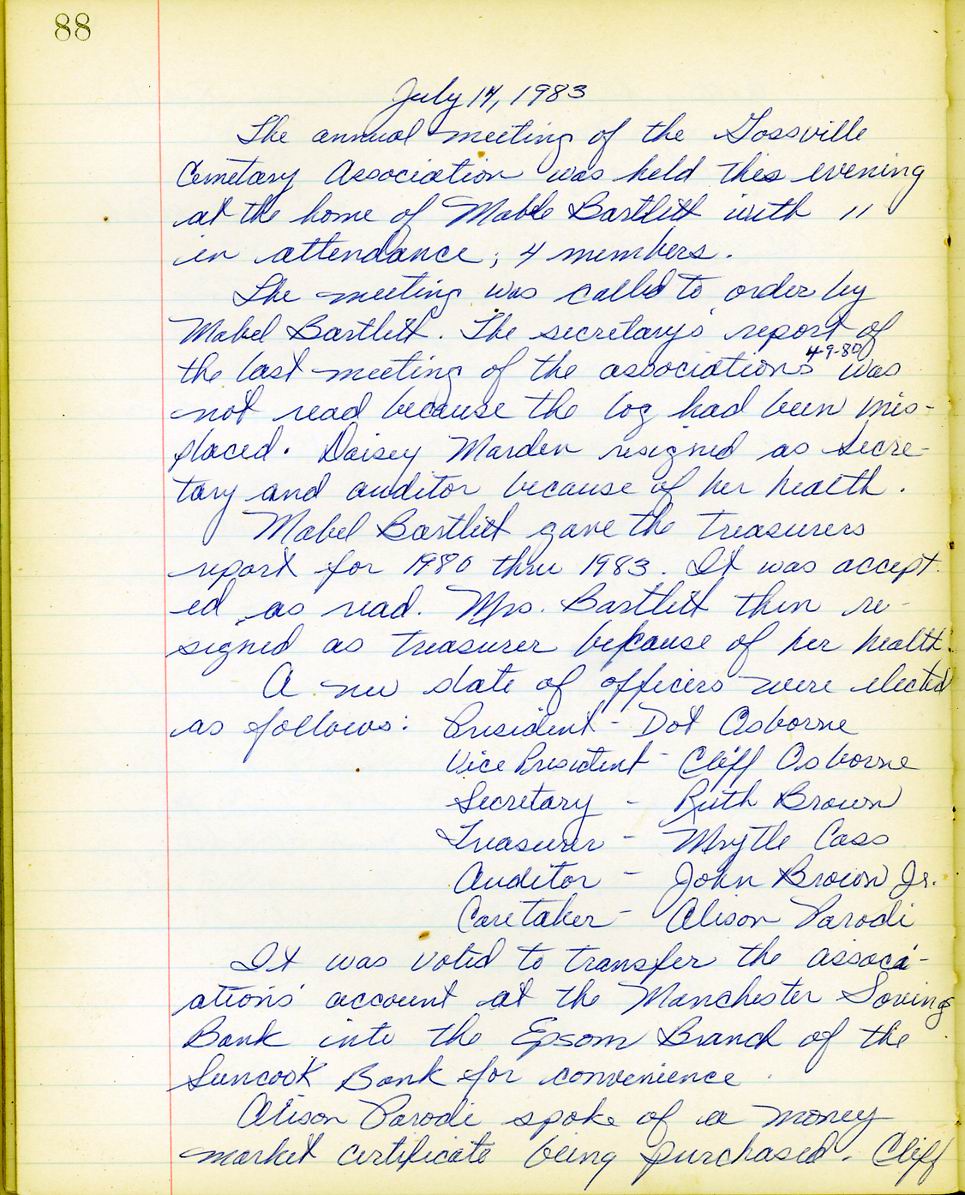 88
July 14, 1983
The annual meeting of the Gossville
Cemetary Association was held this evening
at the home of Mable Bartlett with 11
in attendance; 4 members.
The meeting was called to order by
Mabel Bartlett. The secretary's report of
4-9-80
the last meeting of the associations was
not read because the log had been mis-
placed. Daisey Marden resigned as Secre-
tary and auditor because of her health.
Mabel Bartlett gave the treasurers
report for 1980 thru 1983. It was accept-
ed as read. Mrs. Bartlett then re-
signed as treasurer because of her health.
A new slate of officers were elected
as follows: President - Dot Osborne
Vice President - Cliff Osborne
Secretary - Ruth Brown
Treasurer - Mrytle Cass
Auditor - John Brown Jr.
Caretaker - Alison Parodi
It was voted to transfer the associ-
ations' account at the Manchester Savings
Bank into the Epsom Branch of the
Suncook Bank for convenience.
Alison Parodi spoke of a money
market certificate being purchased. Cliff